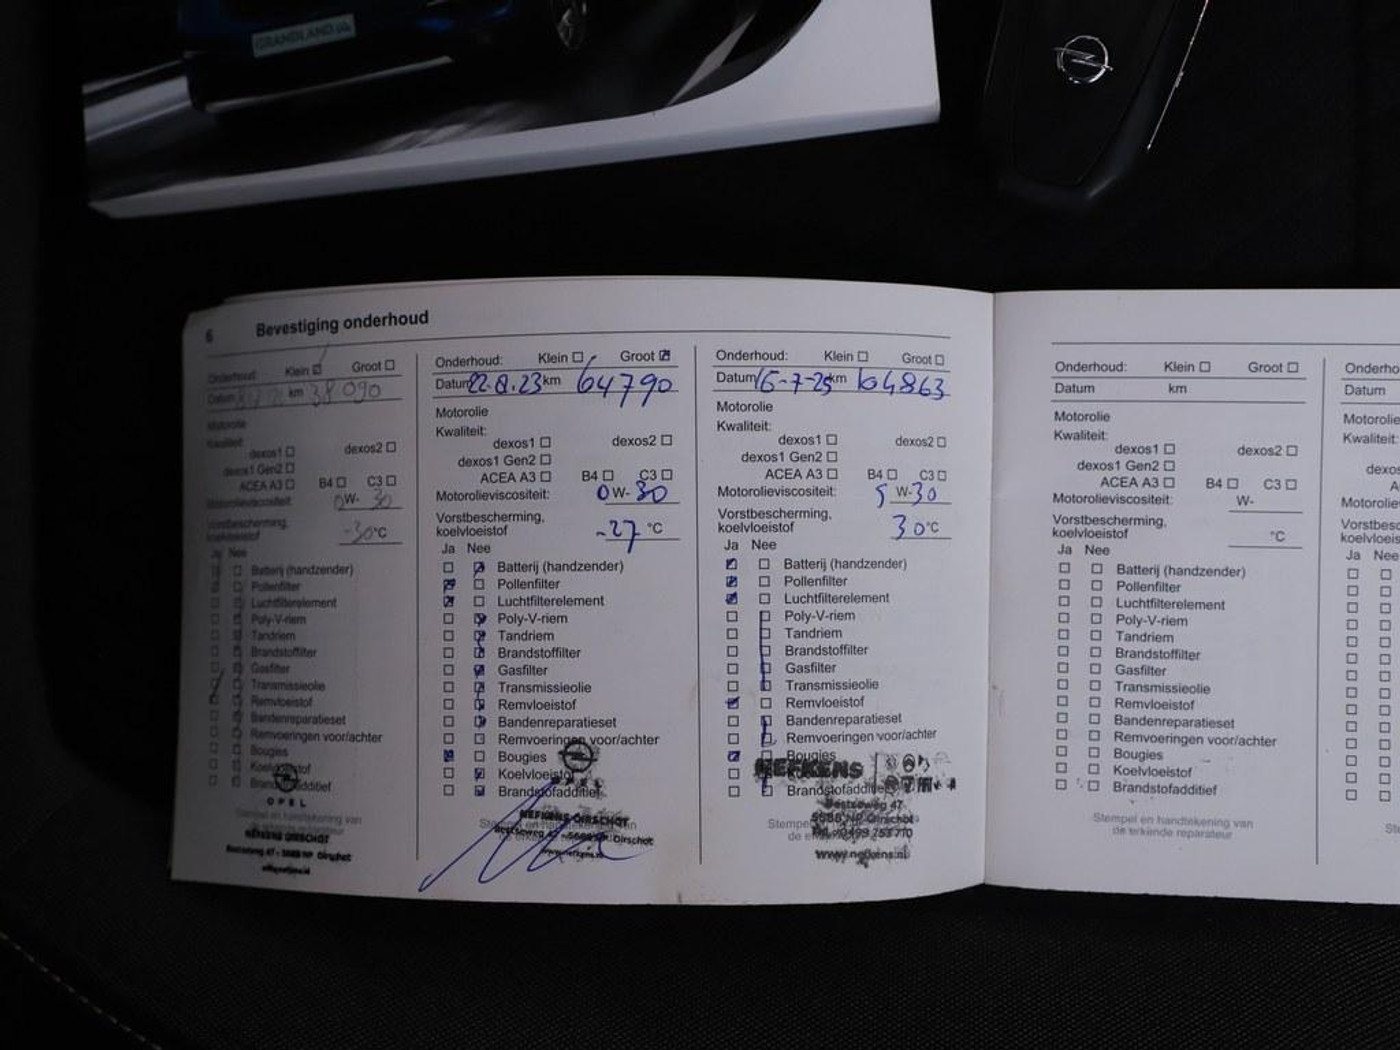 GRANDLAND
6 Bevestiging onderhoud
Onderhoud: Klein Groot
Datum km 38090
Motorolie
Kwaliteit:
dexos1 dexos2
dexos1 Gen2
ACEA A3 B4 C3
Motorolieviscositeit: 0 W- 30
Vorstbescherming,
koelvloeistof -30 °C
Ja Nee
Batterij (handzender)
Pollenfilter
Luchtfilterelement
Poly-V-riem
Tandriem
Brandstoffilter
Gasfilter
Transmissieolie
Remvloeistof
Bandenreparatieset
Remvoeringen voor/achter
Bougies
Koelvloeistof
Brandstofadditief
OPEL
Stempel en handtekening van
de erkende reparateur
NEFKENS OIRSCHOT
Bestseweg 47 - 5688 NP Oirschot
Onderhoud: Klein Groot
Datum 22.8.23 km 64790
Motorolie
Kwaliteit:
dexos1 dexos2
dexos1 Gen2
ACEA A3 B4 C3
Motorolieviscositeit: 0 W- 30
Vorstbescherming,
koelvloeistof -27 °C
Ja Nee
Batterij (handzender)
Pollenfilter
Luchtfilterelement
Poly-V-riem
Tandriem
Brandstoffilter
Gasfilter
Transmissieolie
Remvloeistof
Bandenreparatieset
Remvoeringen voor/achter
Bougies
Koelvloeistof
Brandstofadditief
OPEL
NEFKENS OIRSCHOT
Stempel en handtekening van
Bestseweg 47 - 5688 NP Oirschot
www.nefkens.nl
Onderhoud: Klein Groot
Datum 16-7-25 km 64863
Motorolie
Kwaliteit:
dexos1 dexos2
dexos1 Gen2
ACEA A3 B4 C3
Motorolieviscositeit: 5 W-30
Vorstbescherming,
koelvloeistof 30 °C
Ja Nee
Batterij (handzender)
Pollenfilter
Luchtfilterelement
Poly-V-riem
Tandriem
Brandstoffilter
Gasfilter
Transmissieolie
Remvloeistof
Bandenreparatieset
Remvoeringen voor/achter
Bougies
NEFKENS
Brandstofadditief
Bestseweg 47
5688 NP Oirschot
Tel. 0499 253710
www.nefkens.nl
Onderhoud: Klein Groot
Datum km
Motorolie
Kwaliteit:
dexos1 dexos2
dexos1 Gen2
ACEA A3 B4 C3
Motorolieviscositeit: W-
Vorstbescherming,
koelvloeistof °C
Ja Nee
Batterij (handzender)
Pollenfilter
Luchtfilterelement
Poly-V-riem
Tandriem
Brandstoffilter
Gasfilter
Transmissieolie
Remvloeistof
Bandenreparatieset
Remvoeringen voor/achter
Bougies
Koelvloeistof
Brandstofadditief
Stempel en handtekening van
de erkende reparateur
Onderho
Datum
Motorolie
Kwaliteit:
dexos
A
Motorolie
Vorstbesc
koelvloeis
Ja Nee